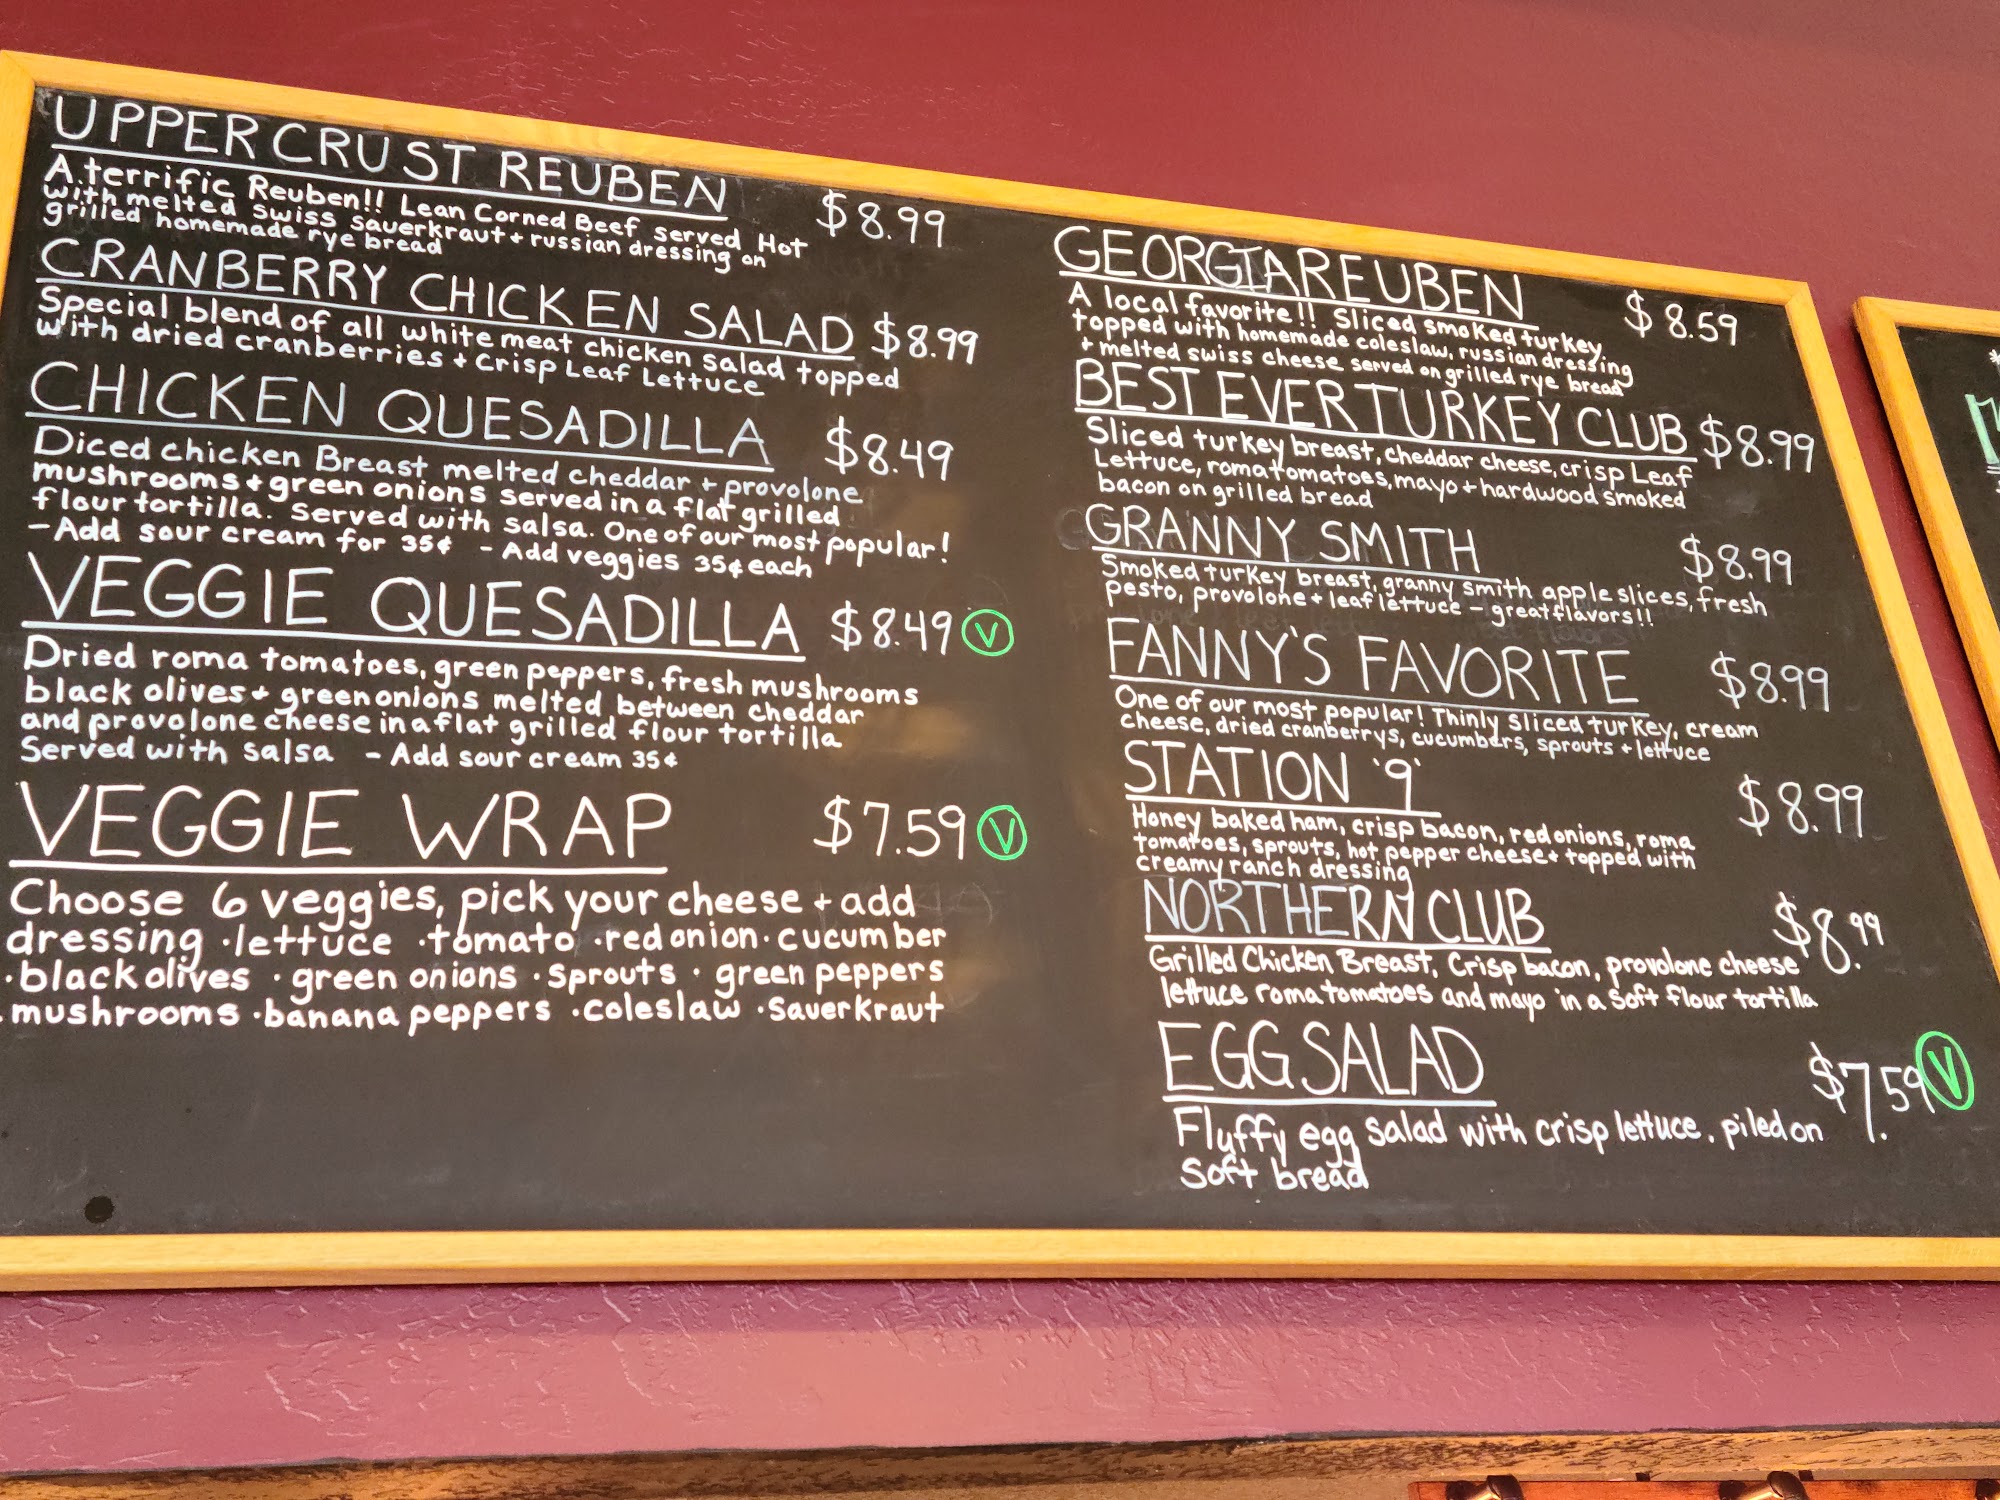 UPPER CRUST REUBEN $8.99
A terrific Reuben!! Lean Corned Beef served Hot
with melted swiss sauerkraut + russian dressing on
grilled homemade rye bread
CRANBERRY CHICKEN SALAD $8.99
Special blend of all white meat chicken salad topped
with dried cranberries + Crisp Leaf Lettuce
CHICKEN QUESADILLA $8.49
Diced chicken Breast melted cheddar + provolone
mushrooms + green onions served in a flat grilled
flour tortilla. Served with salsa. One of our most popular!
- Add sour cream for 35¢ - Add veggies 35¢ each
VEGGIE QUESADILLA $8.49 V
Dried roma tomatoes, green peppers, fresh mushrooms
black olives + green onions melted between cheddar
and provolone cheese in a flat grilled flour tortilla
Served with salsa - Add sour cream 35¢
VEGGIE WRAP $7.59 V
Choose 6 veggies, pick your cheese + add
dressing · lettuce · tomato · red onion · cucumber
· black olives · green onions · sprouts · green peppers
· mushrooms · banana peppers · coleslaw · sauerkraut
GEORGIA REUBEN $8.59
A local favorite!! Sliced smoked turkey,
topped with homemade coleslaw, russian dressing
+ melted swiss cheese served on grilled rye bread
BEST EVER TURKEY CLUB $8.99
Sliced turkey breast, cheddar cheese, crisp Leaf
Lettuce, roma tomatoes, mayo + hardwood smoked
bacon on grilled bread
GRANNY SMITH $8.99
Smoked turkey breast, granny smith apple slices, fresh
pesto, provolone + leaf lettuce - great flavors!!
FANNY'S FAVORITE $8.99
One of our most popular! Thinly Sliced turkey, cream
cheese, dried cranberrys, cucumbers, sprouts + lettuce
STATION '9' $8.99
Honey baked ham, crisp bacon, red onions, roma
tomatoes, sprouts, hot pepper cheese + topped with
creamy ranch dressing
NORTHERN CLUB $8.99
Grilled Chicken Breast, Crisp bacon, provolone cheese
lettuce roma tomatoes and mayo in a soft flour tortilla
EGG SALAD $7.59 V
Fluffy egg salad with crisp lettuce, piled on
soft bread